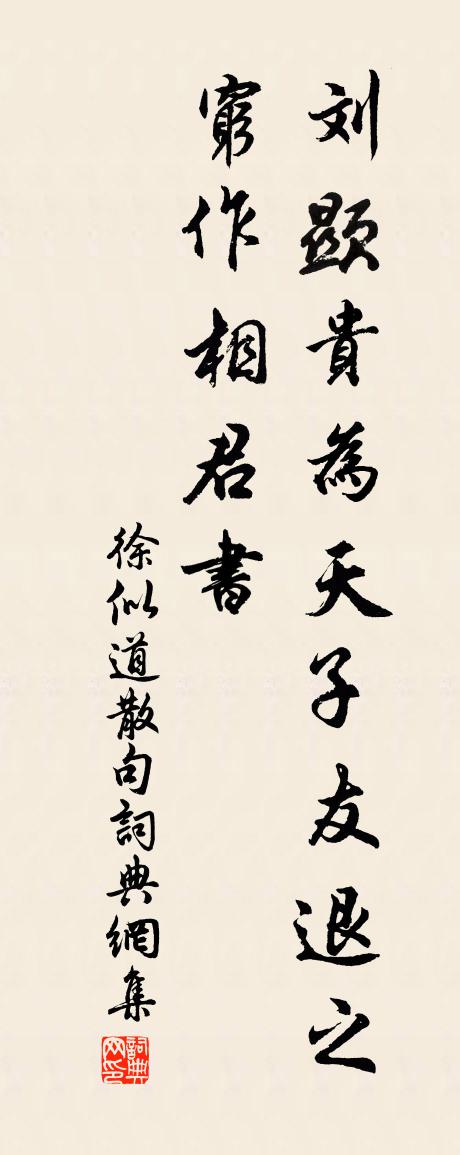 刘顯貴為天子友退之
窮作相君書
徐似道散句詞典網集
詞典网印